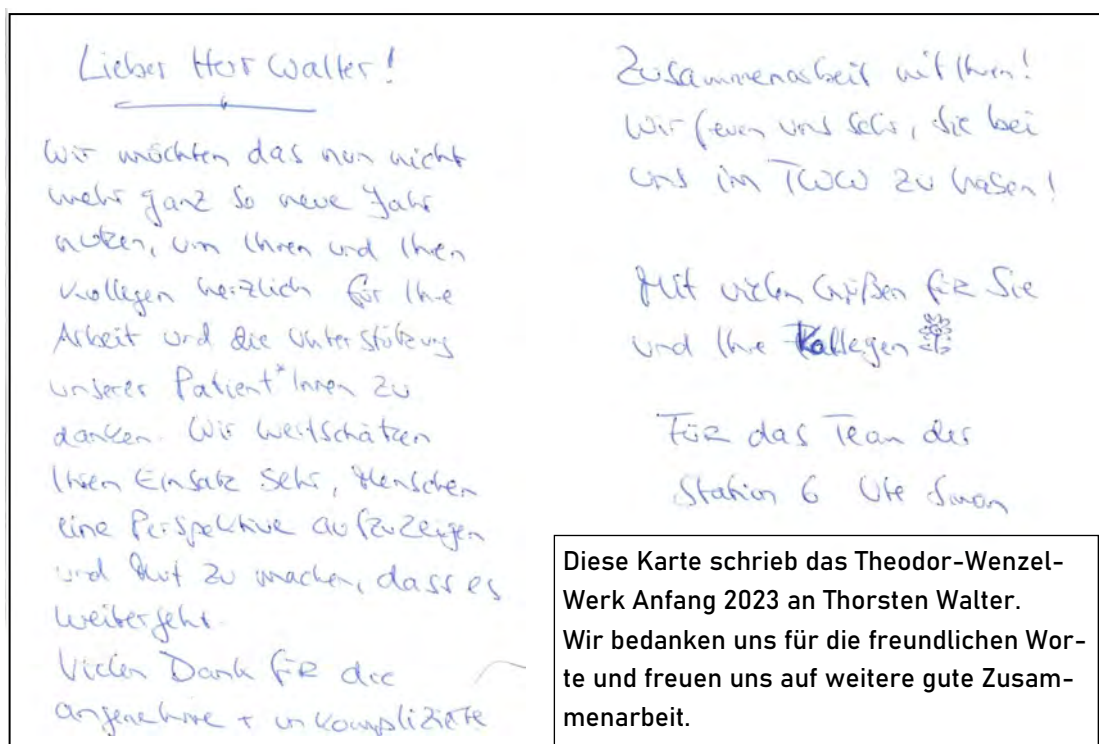 Lieber Herr Walter!
Wir möchten das nun nicht
mehr ganz so neue Jahr
nutzen, um Ihnen und Ihren
Kollegen herzlich für Ihre
Arbeit und die Unterstützung
unserer Patient*Innen zu
danken. Wir wertschätzen
Ihren Einsatz sehr, Menschen
eine Perspektive aufzuzeigen
und Mut zu machen, dass es
weitergeht.
Vielen Dank für die
angenehme + unkomplizierte
Zusammenarbeit mit Ihnen!
Wir freuen uns sehr, Sie bei
uns im TWW zu haben!
Mit vielen Grüßen für Sie
und Ihre Kollegen
Für das Team der
Station 6 Ute
Diese Karte schrieb das Theodor-Wenzel-
Werk Anfang 2023 an Thorsten Walter.
Wir bedanken uns für die freundlichen Wor-
te und freuen uns auf weitere gute Zusam-
menarbeit.